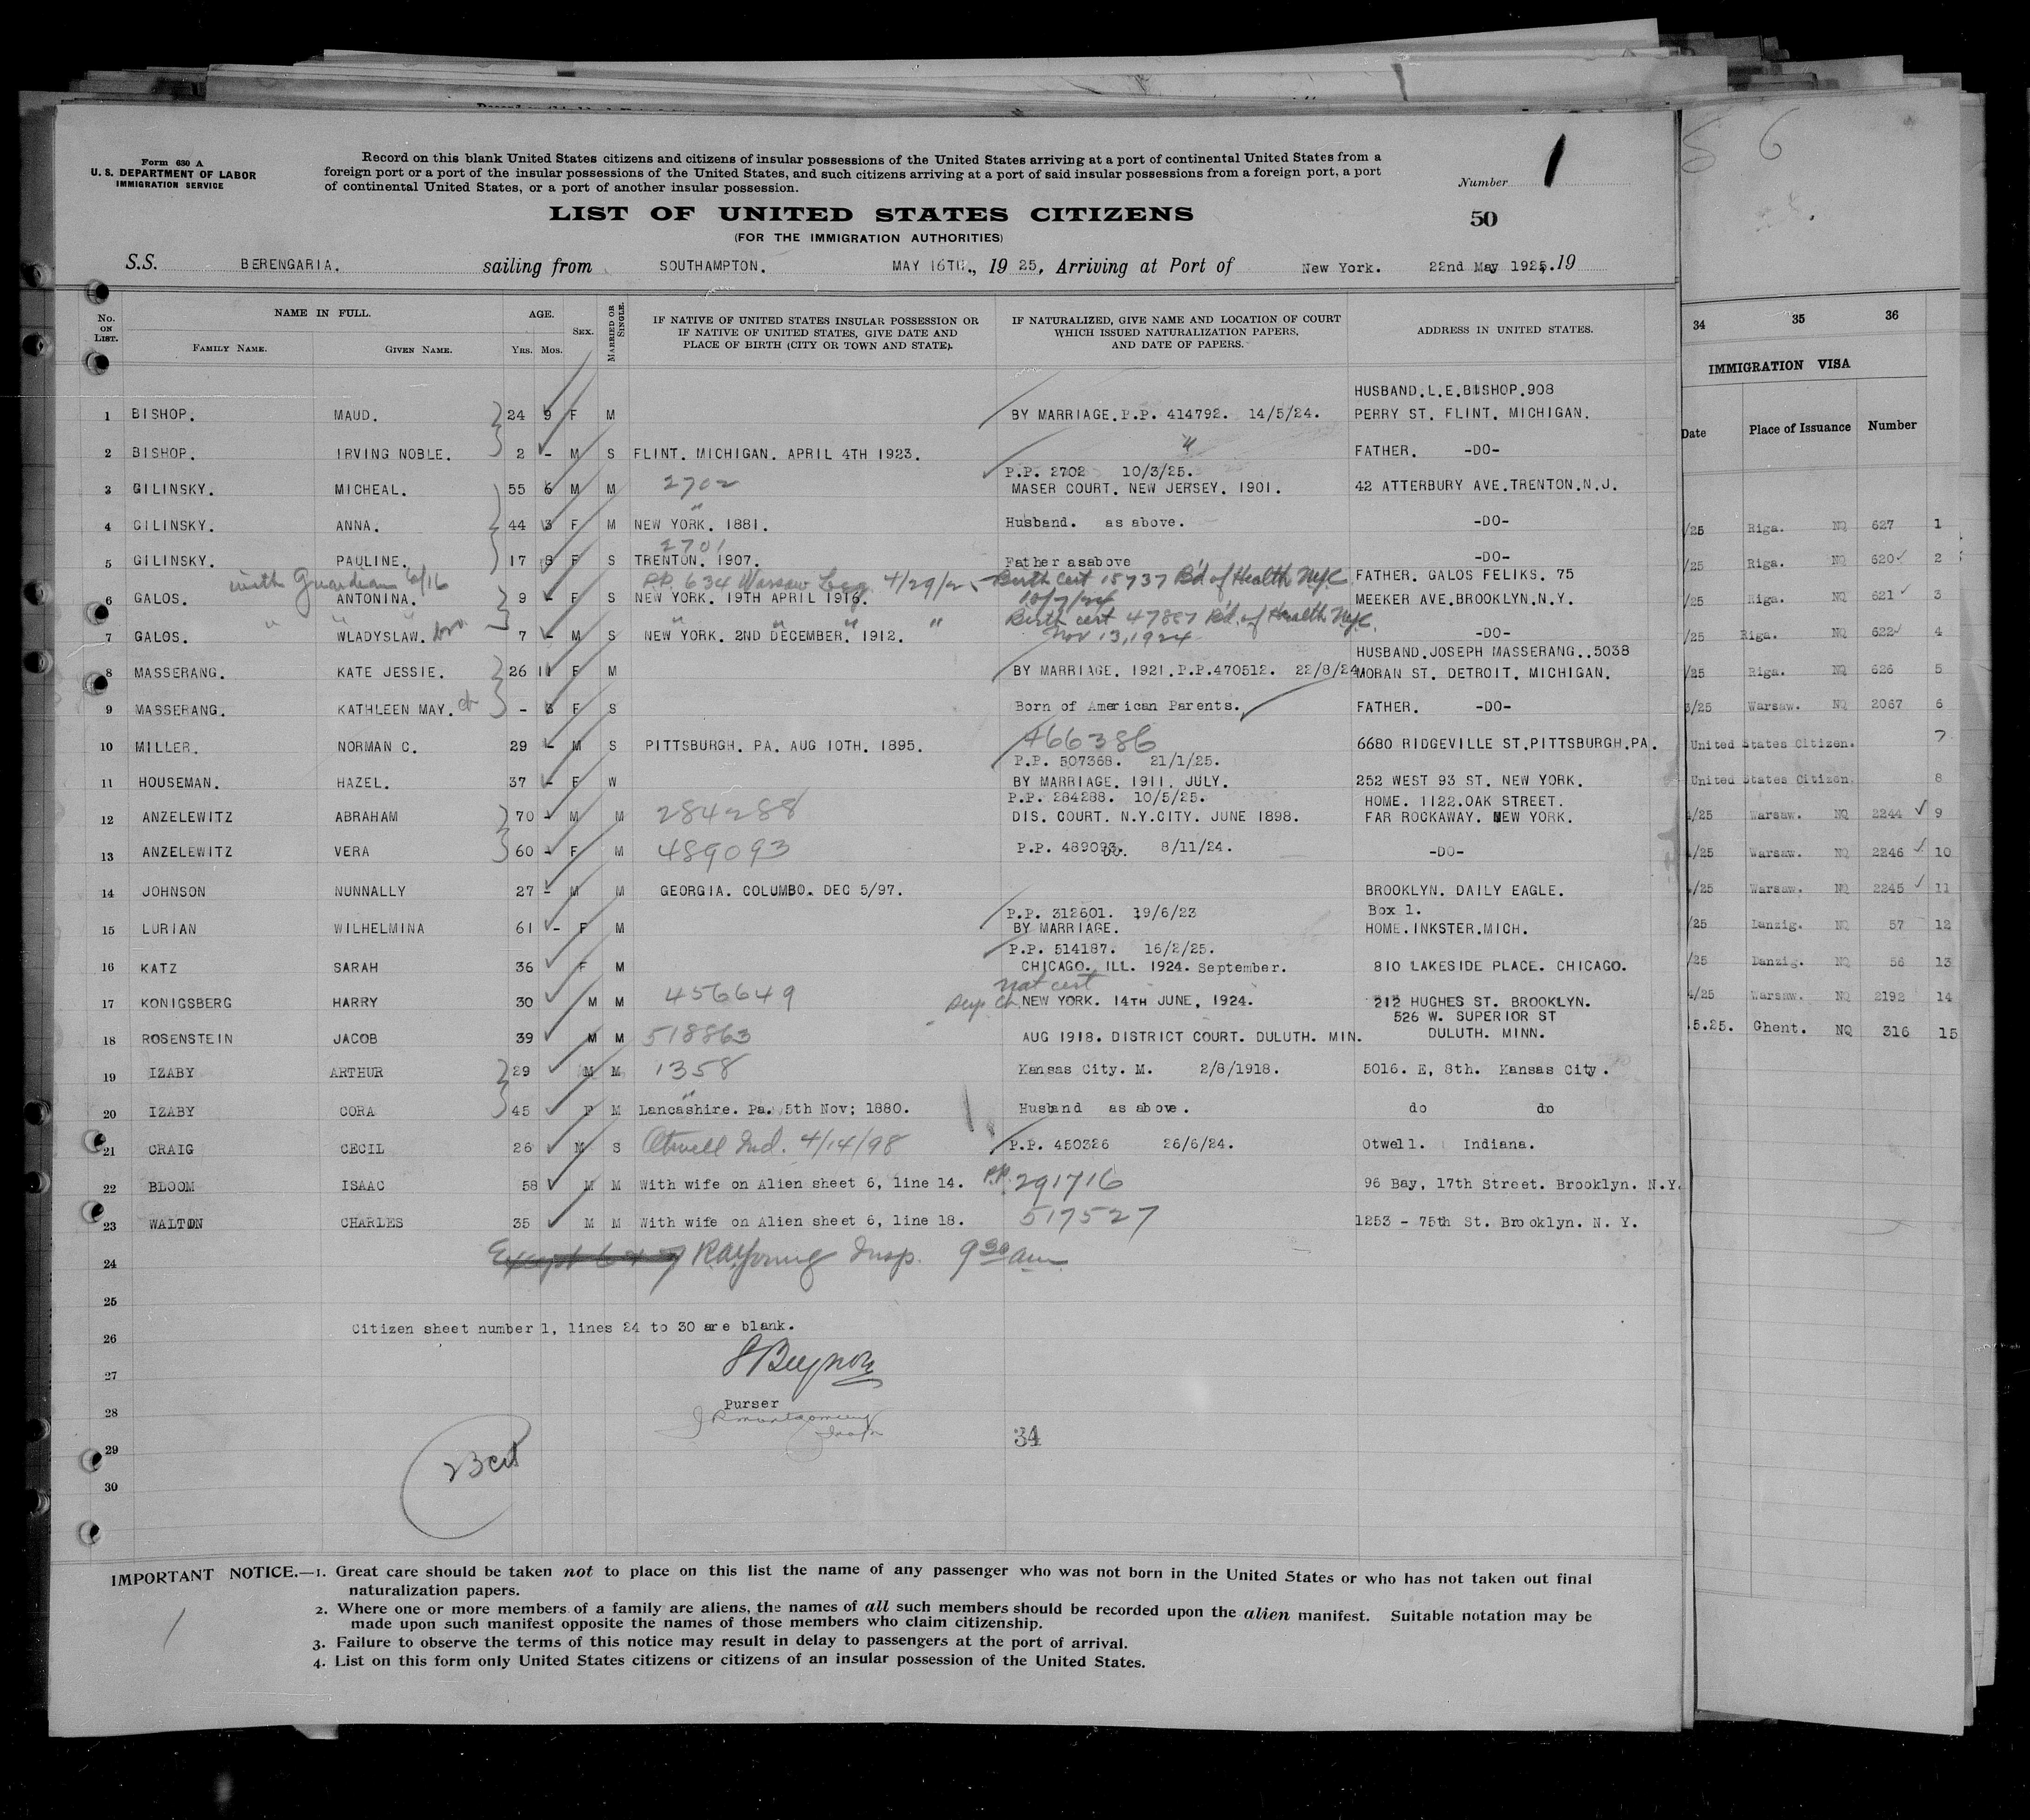 Form 630 A
U. S. DEPARTMENT OF LABOR
IMMIGRATION SERVICE
Record on this blank United States citizens and citizens of insular possessions of the United States arriving at a port of continental United States from a
foreign port or a port of the insular possessions of the United States, and such citizens arriving at a port of said insular possessions from a foreign port, a port
of continental United States, or a port of another insular possession.
Number 1
LIST OF UNITED STATES CITIZENS
50
(FOR THE IMMIGRATION AUTHORITIES)
S.S. BERENGARIA. sailing from SOUTHAMPTON. MAY 16TH., 19 25, Arriving at Port of New York. 22nd May 1925. 19
No. ON LIST. NAME IN FULL. FAMILY NAME. GIVEN NAME. AGE. YRS. MOS. SEX. MARRIED OR SINGLE. IF NATIVE OF UNITED STATES INSULAR POSSESSION OR IF NATIVE OF UNITED STATES, GIVE DATE AND PLACE OF BIRTH (CITY OR TOWN AND STATE). IF NATURALIZED, GIVE NAME AND LOCATION OF COURT WHICH ISSUED NATURALIZATION PAPERS, AND DATE OF PAPERS. ADDRESS IN UNITED STATES.
HUSBAND.L.E.BISHOP.908
1 BISHOP. MAUD. 24 9 F M BY MARRIAGE.P.P. 414792. 14/5/24. PERRY ST. FLINT. MICHIGAN.
2 BISHOP. IRVING NOBLE. 2 - M S FLINT. MICHIGAN. APRIL 4TH 1923. " FATHER. -DO-
P.P. 2702 10/3/25.
3 GILINSKY. MICHEAL. 55 6 M M 2702 MASER COURT. NEW JERSEY. 1901. 42 ATTERBURY AVE.TRENTON.N.J.
4 GILINSKY. ANNA. 44 3 F M " NEW YORK. 1881. Husband. as above. -DO-
5 GILINSKY. PAULINE. 17 8 F S 2701 TRENTON. 1907. Father asabove -DO-
with Guardian 6/16 PP. 634 Warsaw Leg. 4/29/25 Birth cert 15737 Bd of Health NYC FATHER. GALOS FELIKS. 75
6 GALOS. ANTONINA. 9 - F S NEW YORK. 19TH APRIL 1916. 10/7/24 MEEKER AVE.BROOKLYN.N.Y.
" " " " " " Birth cert 47887 Bd. of Health NYC.
7 GALOS. WLADYSLAW. bro 7 - M S NEW YORK. 2ND DECEMBER. 1912. Nov 13, 1924 -DO-
HUSBAND.JOSEPH MASSERANG..5038
8 MASSERANG. KATE JESSIE. 26 11 F M BY MARRIAGE. 1921.P.P.470512. 22/8/24 MORAN ST. DETROIT. MICHIGAN.
9 MASSERANG. KATHLEEN MAY. - 3 F S Born of American Parents. FATHER. -DO-
10 MILLER. NORMAN C. 29 - M S PITTSBURGH. PA. AUG 10TH. 1895. 466386 6680 RIDGEVILLE ST.PITTSBURGH.PA.
P.P. 507368. 21/1/25.
11 HOUSEMAN. HAZEL. 37 - F W BY MARRIAGE. 1911. JULY. 252 WEST 93 ST. NEW YORK.
P.P. 284288. 10/5/25. HOME. 1122.OAK STREET.
12 ANZELEWITZ ABRAHAM 70 - M M 284288 DIS. COURT. N.Y.CITY. JUNE 1898. FAR ROCKAWAY. NEW YORK.
13 ANZELEWITZ VERA 60 - F M 489093 P.P. 489093. DO. 8/11/24. -DO-
14 JOHNSON NUNNALLY 27 - M M GEORGIA. COLUMBO. DEC 5/97. BROOKLYN. DAILY EAGLE.
P.P. 312601. 19/6/23 Box 1.
15 LURIAN WILHELMINA 61 - F M BY MARRIAGE. HOME.INKSTER.MICH.
P.P. 514187. 16/2/25.
16 KATZ SARAH 36 F M CHICAGO. ILL. 1924. September. 810 LAKESIDE PLACE. CHICAGO.
nat cert
17 KONIGSBERG HARRY 30 M M 456649 NEW YORK. 14TH JUNE, 1924. 212 HUGHES ST. BROOKLYN.
526 W. SUPERIOR ST
18 ROSENSTEIN JACOB 39 M M 518863 AUG 1918. DISTRICT COURT. DULUTH. MIN. DULUTH. MINN.
19 IZABY ARTHUR 29 M M 1358 Kansas City. M. 2/8/1918. 5016. E, 8th. Kansas City.
20 IZABY CORA 45 F M " Lancashire. Pa. 5th Nov; 1880. Husband as above. do do
21 CRAIG CECIL 26 M S Otwell Ind. 4/14/98 P.P. 450326 26/6/24. Otwell. Indiana.
22 BLOOM ISAAC 58 M M With wife on Alien sheet 6, line 14. P.P. 291716 96 Bay, 17th Street. Brooklyn. N.Y.
23 WALTON CHARLES 35 M M With wife on Alien sheet 6, line 18. 517527 1253 - 75th St. Brooklyn. N. Y.
24 Except 6 & 7 Insp. 9 30 am
25
Citizen sheet number 1, lines 24 to 30 are blank.
26
27
Purser
28
29 34
30
IMPORTANT NOTICE.—1. Great care should be taken not to place on this list the name of any passenger who was not born in the United States or who has not taken out final
naturalization papers.
2. Where one or more members of a family are aliens, the names of all such members should be recorded upon the alien manifest. Suitable notation may be
made upon such manifest opposite the names of those members who claim citizenship.
3. Failure to observe the terms of this notice may result in delay to passengers at the port of arrival.
4. List on this form only United States citizens or citizens of an insular possession of the United States.
6
34 35 36
IMMIGRATION VISA
Date Place of Issuance Number
/25 Riga. NQ 627 1
/25 Riga. NQ 620 2
/25 Riga. NQ 621 3
/25 Riga. NQ 622 4
/25 Riga. NQ 626 5
/25 Warsaw. NQ 2067 6
United States Citizen. 7
United States Citizen. 8
/25 Warsaw. NQ 2244 9
/25 Warsaw. NQ 2246 10
/25 Warsaw. NQ 2245 11
/25 Danzig. NQ 57 12
/25 Danzig. NQ 56 13
4/25 Warsaw. NQ 2192 14
.5.25. Ghent. NQ 316 15